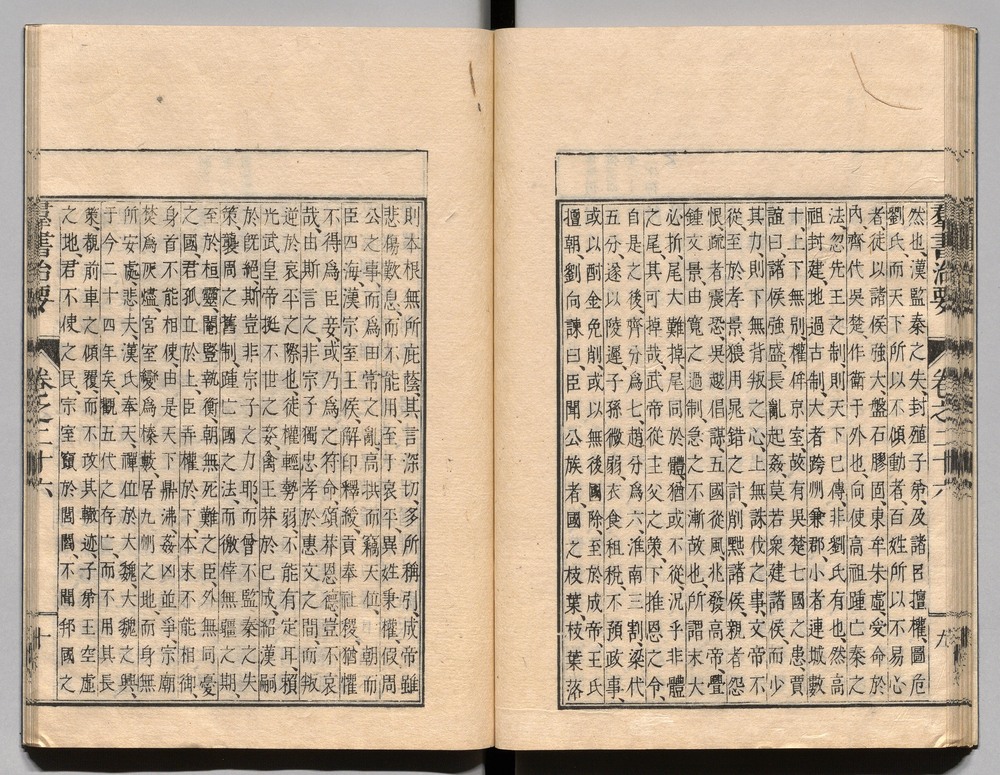 羣書治要 卷之二十六 九
然也漢監秦之失封殖子弟及諸呂擅權圖危
劉氏而天下所以不傾動者百姓所以不易心
者徒以諸侯強大盤石膠固東牟朱虛受命於
內齊代吳楚作衞于外也向使高祖踵亡秦之
法忽先王之制則天下已傳非劉氏有也然高
祖封建地過古制大者跨州兼郡小者連城數
十上下無別權侔京室故有吳楚七國之患賈
誼曰諸侯強盛長亂起姦莫若衆建諸侯而少
其力則下無背叛之心上無誅伐之事文帝不
從至於孝景猥用晁錯之計削黜諸侯親者怨
恨疏者震恐吳越倡謀五國從風兆發高帝釁
鍾文景由寬之過制急之不漸故也所謂末大
必折尾大難掉尾同於體猶或不從況乎非體
之尾其可掉哉武帝從主父之策下推恩之令
自是之後齊分爲七趙分爲六淮南三割梁代
五分遂以陵遲子孫微弱衣食租稅不預政事
或以酎金免削或以無後國除至於成帝王氏
擅朝劉向諫曰臣聞公族者國之枝葉枝葉落
則本根無所庇蔭其言深切多所稱引成帝雖
悲傷歎息而不能用至于哀平異姓秉權假周
公之事而爲田常之亂高拱而竊天位一朝而
臣四海漢宗室王侯解印釋綬貢奉社稷猶懼
不得爲臣妾或乃爲之符命頌莽恩德豈不哀
哉由斯言之非宗子獨忠孝於惠文之閒而叛
逆於哀平之際也徒權輕勢弱不能有定耳賴
光武皇帝挺不世之姿禽王莽於已成紹漢嗣
於旣絕斯豈非宗子之力耶而曾不監秦之失
策襲周之舊制踵亡國之法而徼倖無疆之期
至於桓靈閹豎執衡朝無死難之臣外無同憂
之國君孤立於上臣弄權於下本末不能相御
身首不能相使由是天下鼎沸姦凶並爭宗廟
焚爲灰燼宮室變爲榛藪居九州之地而身無
所安處悲夫漢氏奉天禪位於大魏大魏之興
于今二十四年矣觀五代之存亡而不用其長
策覩前車之傾覆而不改其轍迹子弟王空虛
之地君不使之民宗室竄於閭閻不聞邦國之
羣書治要 卷之二十六 十